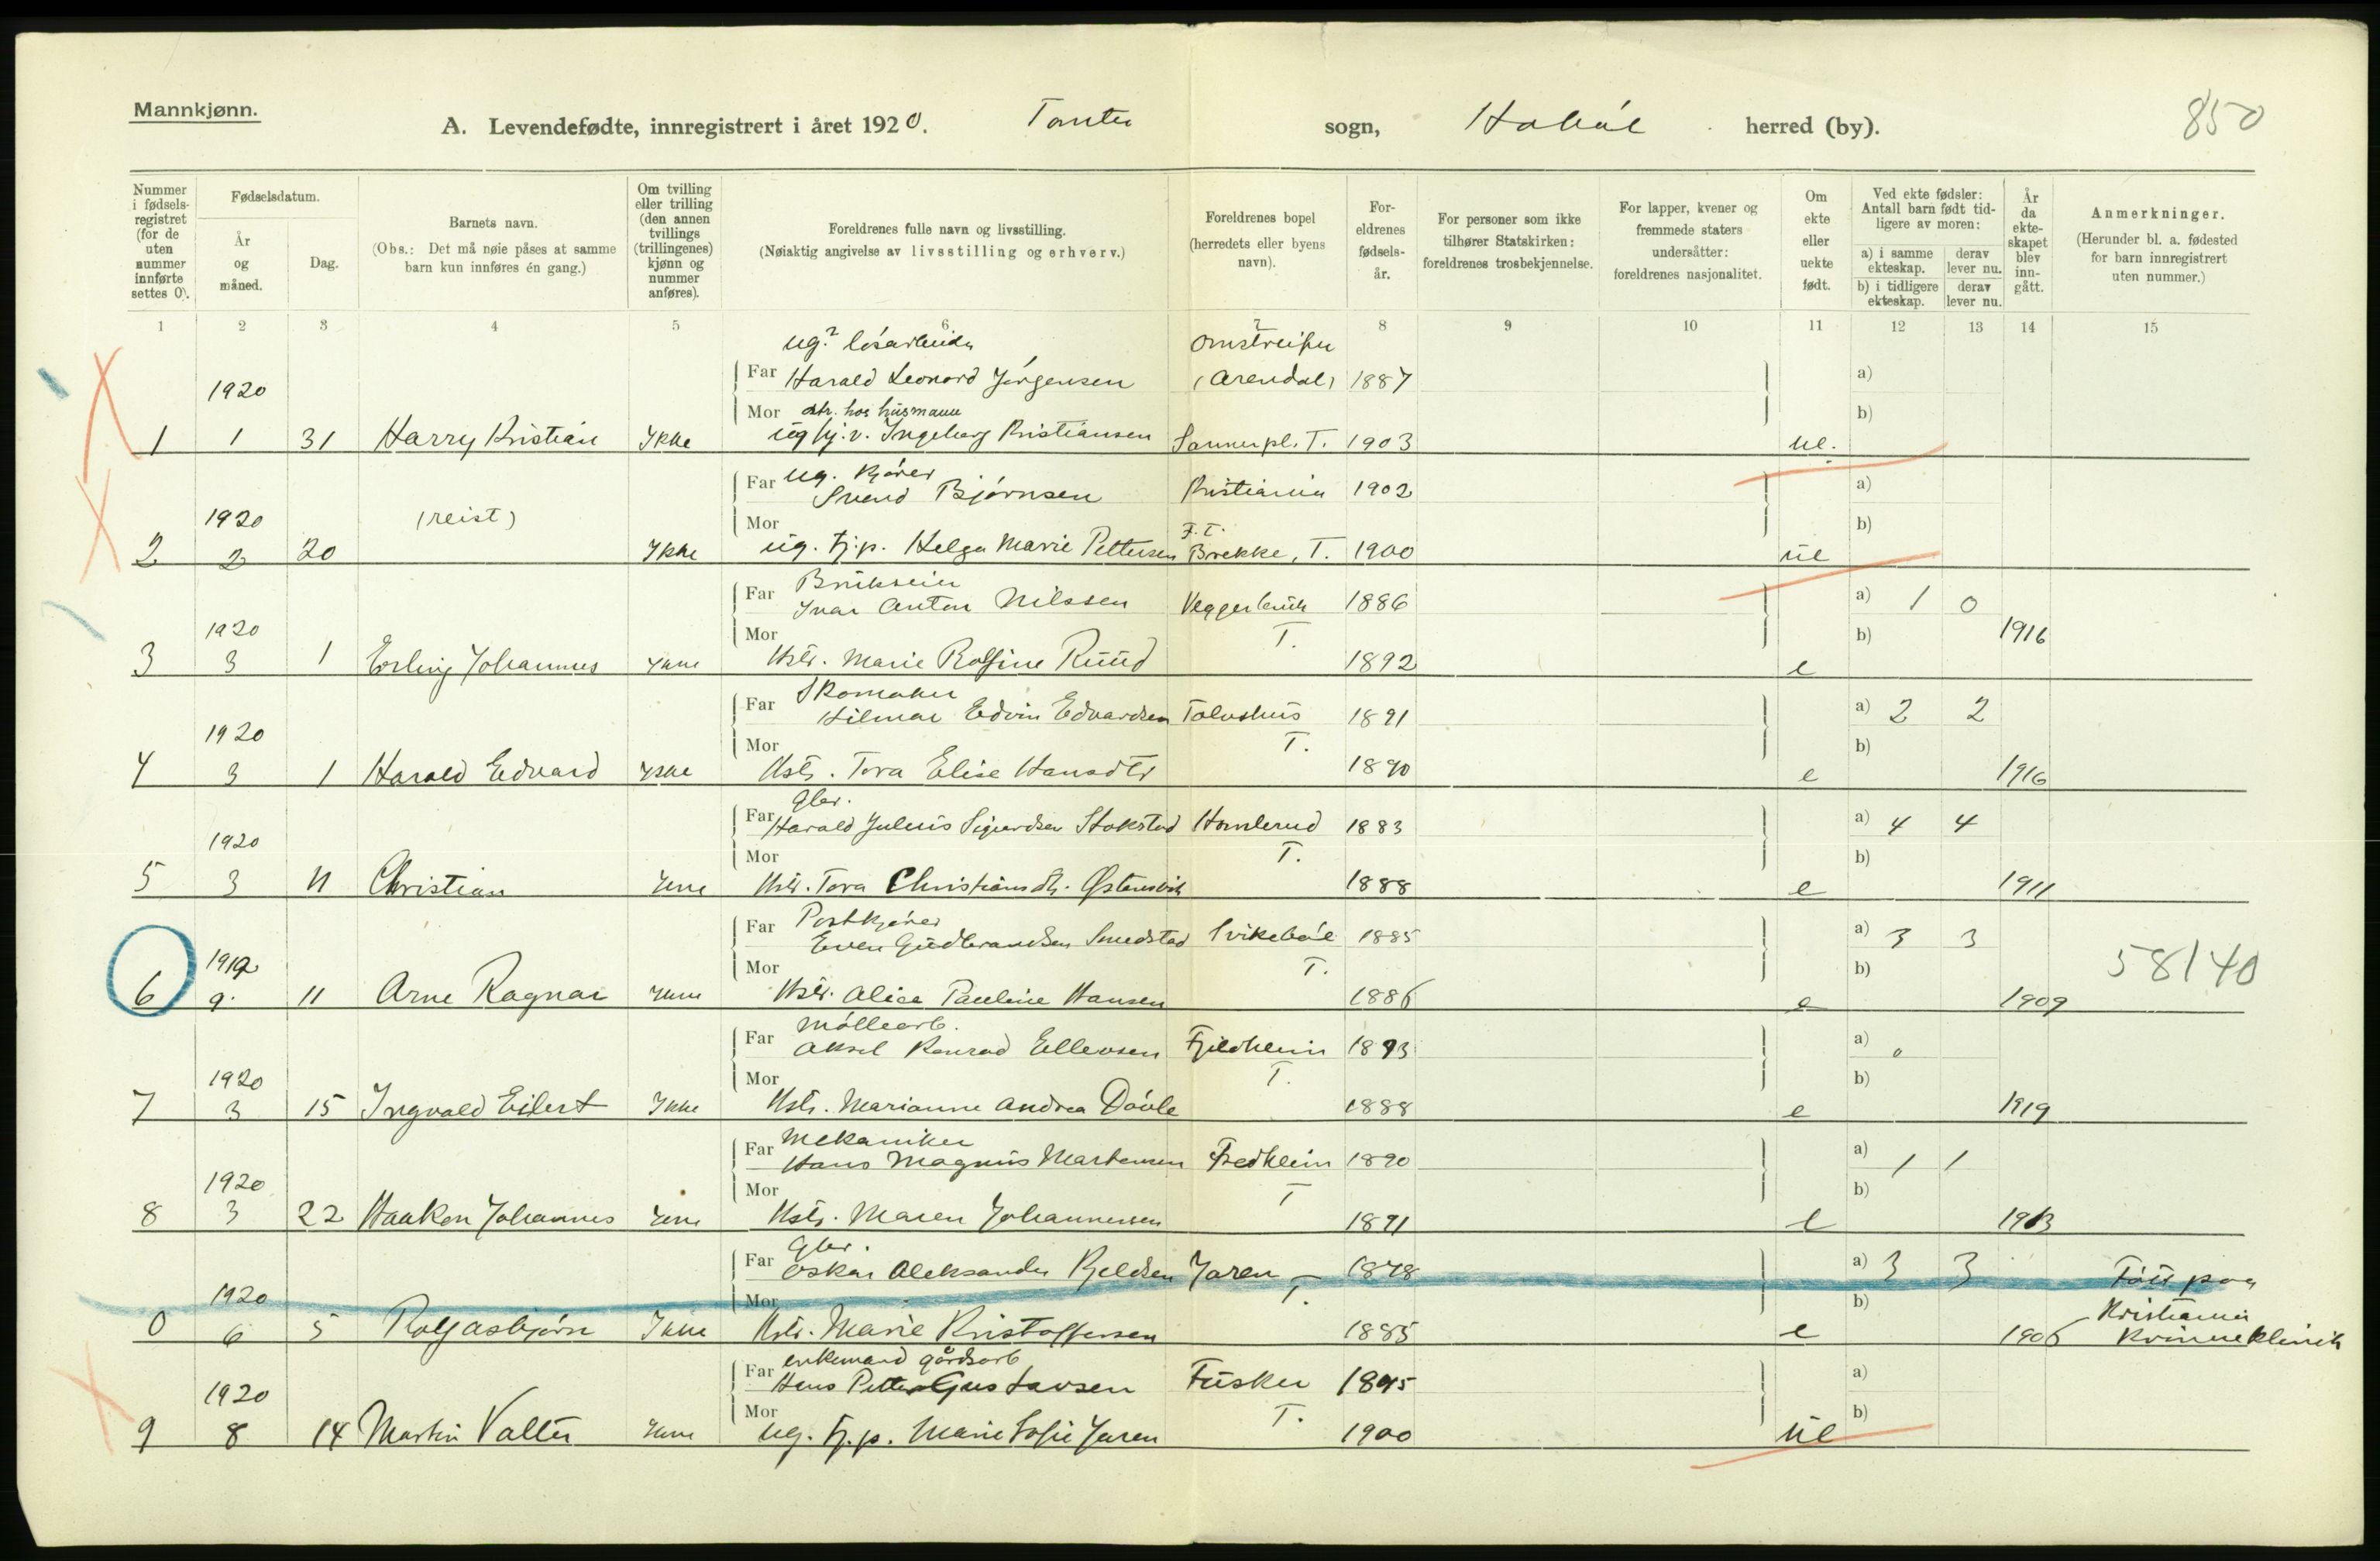 Mannkjønn.
A. Levendefødte, innregistrert i året 1920. Tomter sogn, Hobøl herred (by). 850
Nummer i fødselsregistret (for de uten nummer innførte settes 0).
Fødselsdatum.
År og måned.
Dag.
Barnets navn.
(Obs.: Det må nøie påses at samme barn kun innføres én gang.)
Om tvilling eller trilling (den annen tvillings (trillingenes) kjønn og nummer anføres).
Foreldrenes fulle navn og livsstilling.
(Nøiaktig angivelse av livsstilling og erhverv.)
Foreldrenes bopel (herredets eller byens navn).
Foreldrenes fødselsår.
For personer som ikke tilhører Statskirken: foreldrenes trosbekjennelse.
For lapper, kvener og fremmede staters undersåtter: foreldrenes nasjonalitet.
Om ekte eller uekte født.
Ved ekte fødsler: Antall barn født tidligere av moren:
a) i samme ekteskap. derav lever nu.
b) i tidligere ekteskap. derav lever nu.
År da ekteskapet blev inngått.
Anmerkninger.
(Herunder bl. a. fødested for barn innregistrert uten nummer.)
1 2 3 4 5 6 7 8 9 10 11 12 13 14 15
ug.? løsarbeider omstreifer
Far Harald Leonard Jørgensen (Arendal) 1887 a)
1920
Mor dtr. hos husmann b)
1 1 31 Harry Kristian Ikke ug hj. v. Ingeborg Kristiansen Sannerpl. T. 1903 ue.
Far ug. kjører
Svend Bjørnsen Kristiania 1902 a)
1920 (reist) Mor F. T. b)
2 2 20 Ikke ug. tj.p. Helga Marie Pettersen Brekke, T. 1900 ue
Far Brukseier
Ivar Anton Nilssen 1886 a) 1 0
1920 Mor T. b) 1916
3 3 1 Erling Johannes Ikke Hstr. Marie Rolfine Ruud 1892 e
Far Skomaker
Hilmar Edvin Edvardsen 1891 a) 2 2
1920 Mor T. b)
4 3 1 Harald Edvard Ikke Hstr. Tora Elise Hansdtr 1890 e 1916
Gbr.
Far Harald Julius Sigurdsen Stokstad 1883 a) 4 4
1920 Mor T. b)
5 3 11 Christian Ikke Hstr. Tora Christiansdtr. 1888 e 1911
Far Postkjører
Even Gudbrandsen Smedstad Svikebøl 1885 a) 3 3
1919 Mor T. b) 58140
6 9. 11 Arne Ragnar Ikke Hstr. Alice Pauline Hansen 1886 e 1909
Møllearb.
Far Aksel Konrad Ellevsen Fjeldheim 1893 a) 0
1920 Mor T. b)
7 3 15 Ingvald Eilert Ikke Hstr. Marianne Andrea Døvle 1888 e 1919
Mekaniker
Far Hans Magnus Martensen Fredheim 1890 a) 1 1
1920 Mor T b)
8 3 22 Haakon Johannes Ikke Hstr. Maren Johannessen 1891 e 1913
Gbr.
Far Oskar Aleksander Kjeldsen Jaren 1878 a) 3 3 Født paa
1920 Mor T. b) Kristiania
0 6 5 Rolf Asbjørn Ikke Hstr. Marie Kristoffersen 1885 e 1906 Kvinneklinik
enkemand gårdsarb
Far Hans Petter Gustavsen Fusker 1895 a)
1920 Mor T. b)
9 8 14 Martin Valter Ikke ug. tj.p. Marie Sofie Jaren 1900 ue